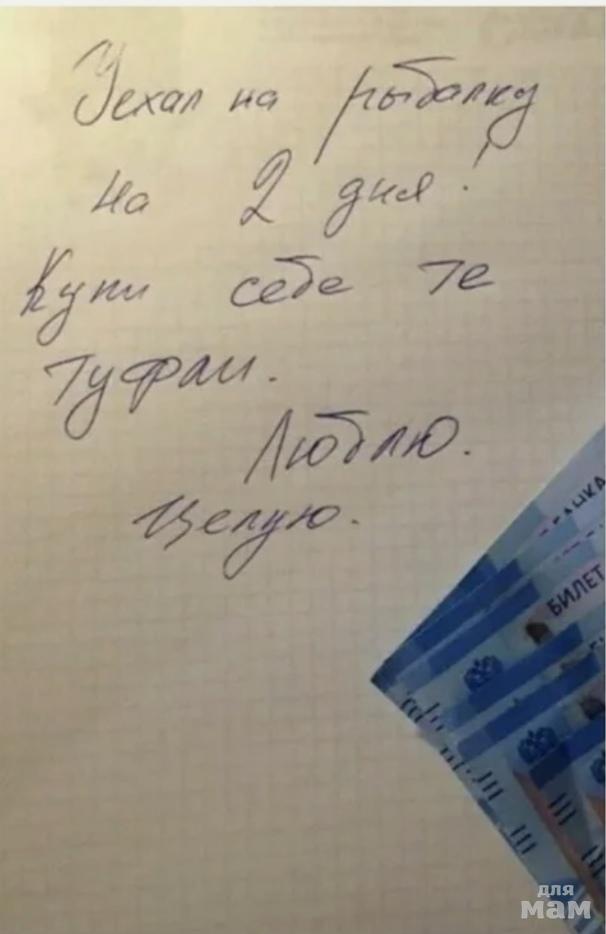 Уехал на рыбалку
на 2 дня!
Купи себе те
туфли.
Люблю.
Целую.
БИЛЕТ
для
мам